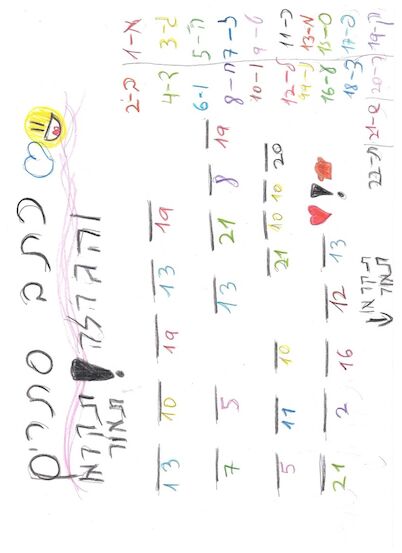 כתב סתרים
19 13 19 10 13
19 8 21 13 5 7
20 10 10 21 10 11 5
! 13 12 16 2 21
א-1 ב-2
ג-3 ד-4
ה-5 ו-6
ז-7 ח-8
ט-9 י-10
כ-11 ל-12
מ-13 נ-14
ס-15 ע-16
פ-17 צ-18
ק-19 ר-20 ש-21 ת-22